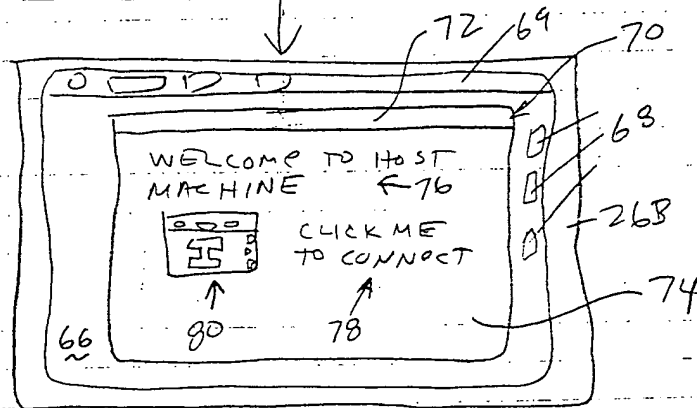 72
69
70
68
WELCOME TO HOST
MACHINE
76
26B
CLICK ME
TO CONNECT
74
80
78
66